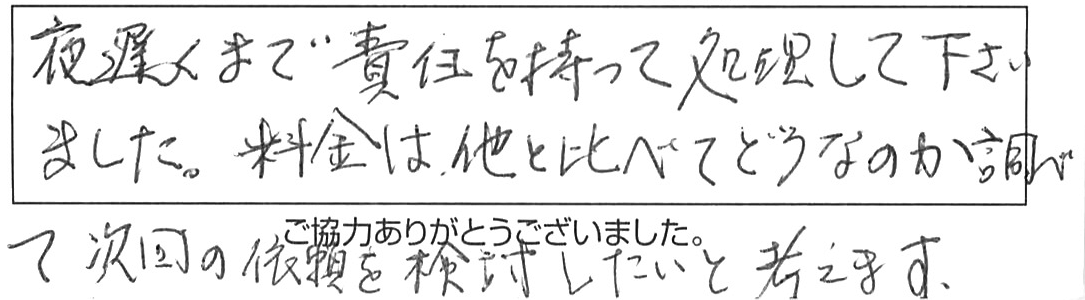 夜遅くまで責任を持って処理して下さい
ました。料金は他と比べてどうなのか調べ
ご協力ありがとうございました。
て次回の依頼を検討したいと考えます、